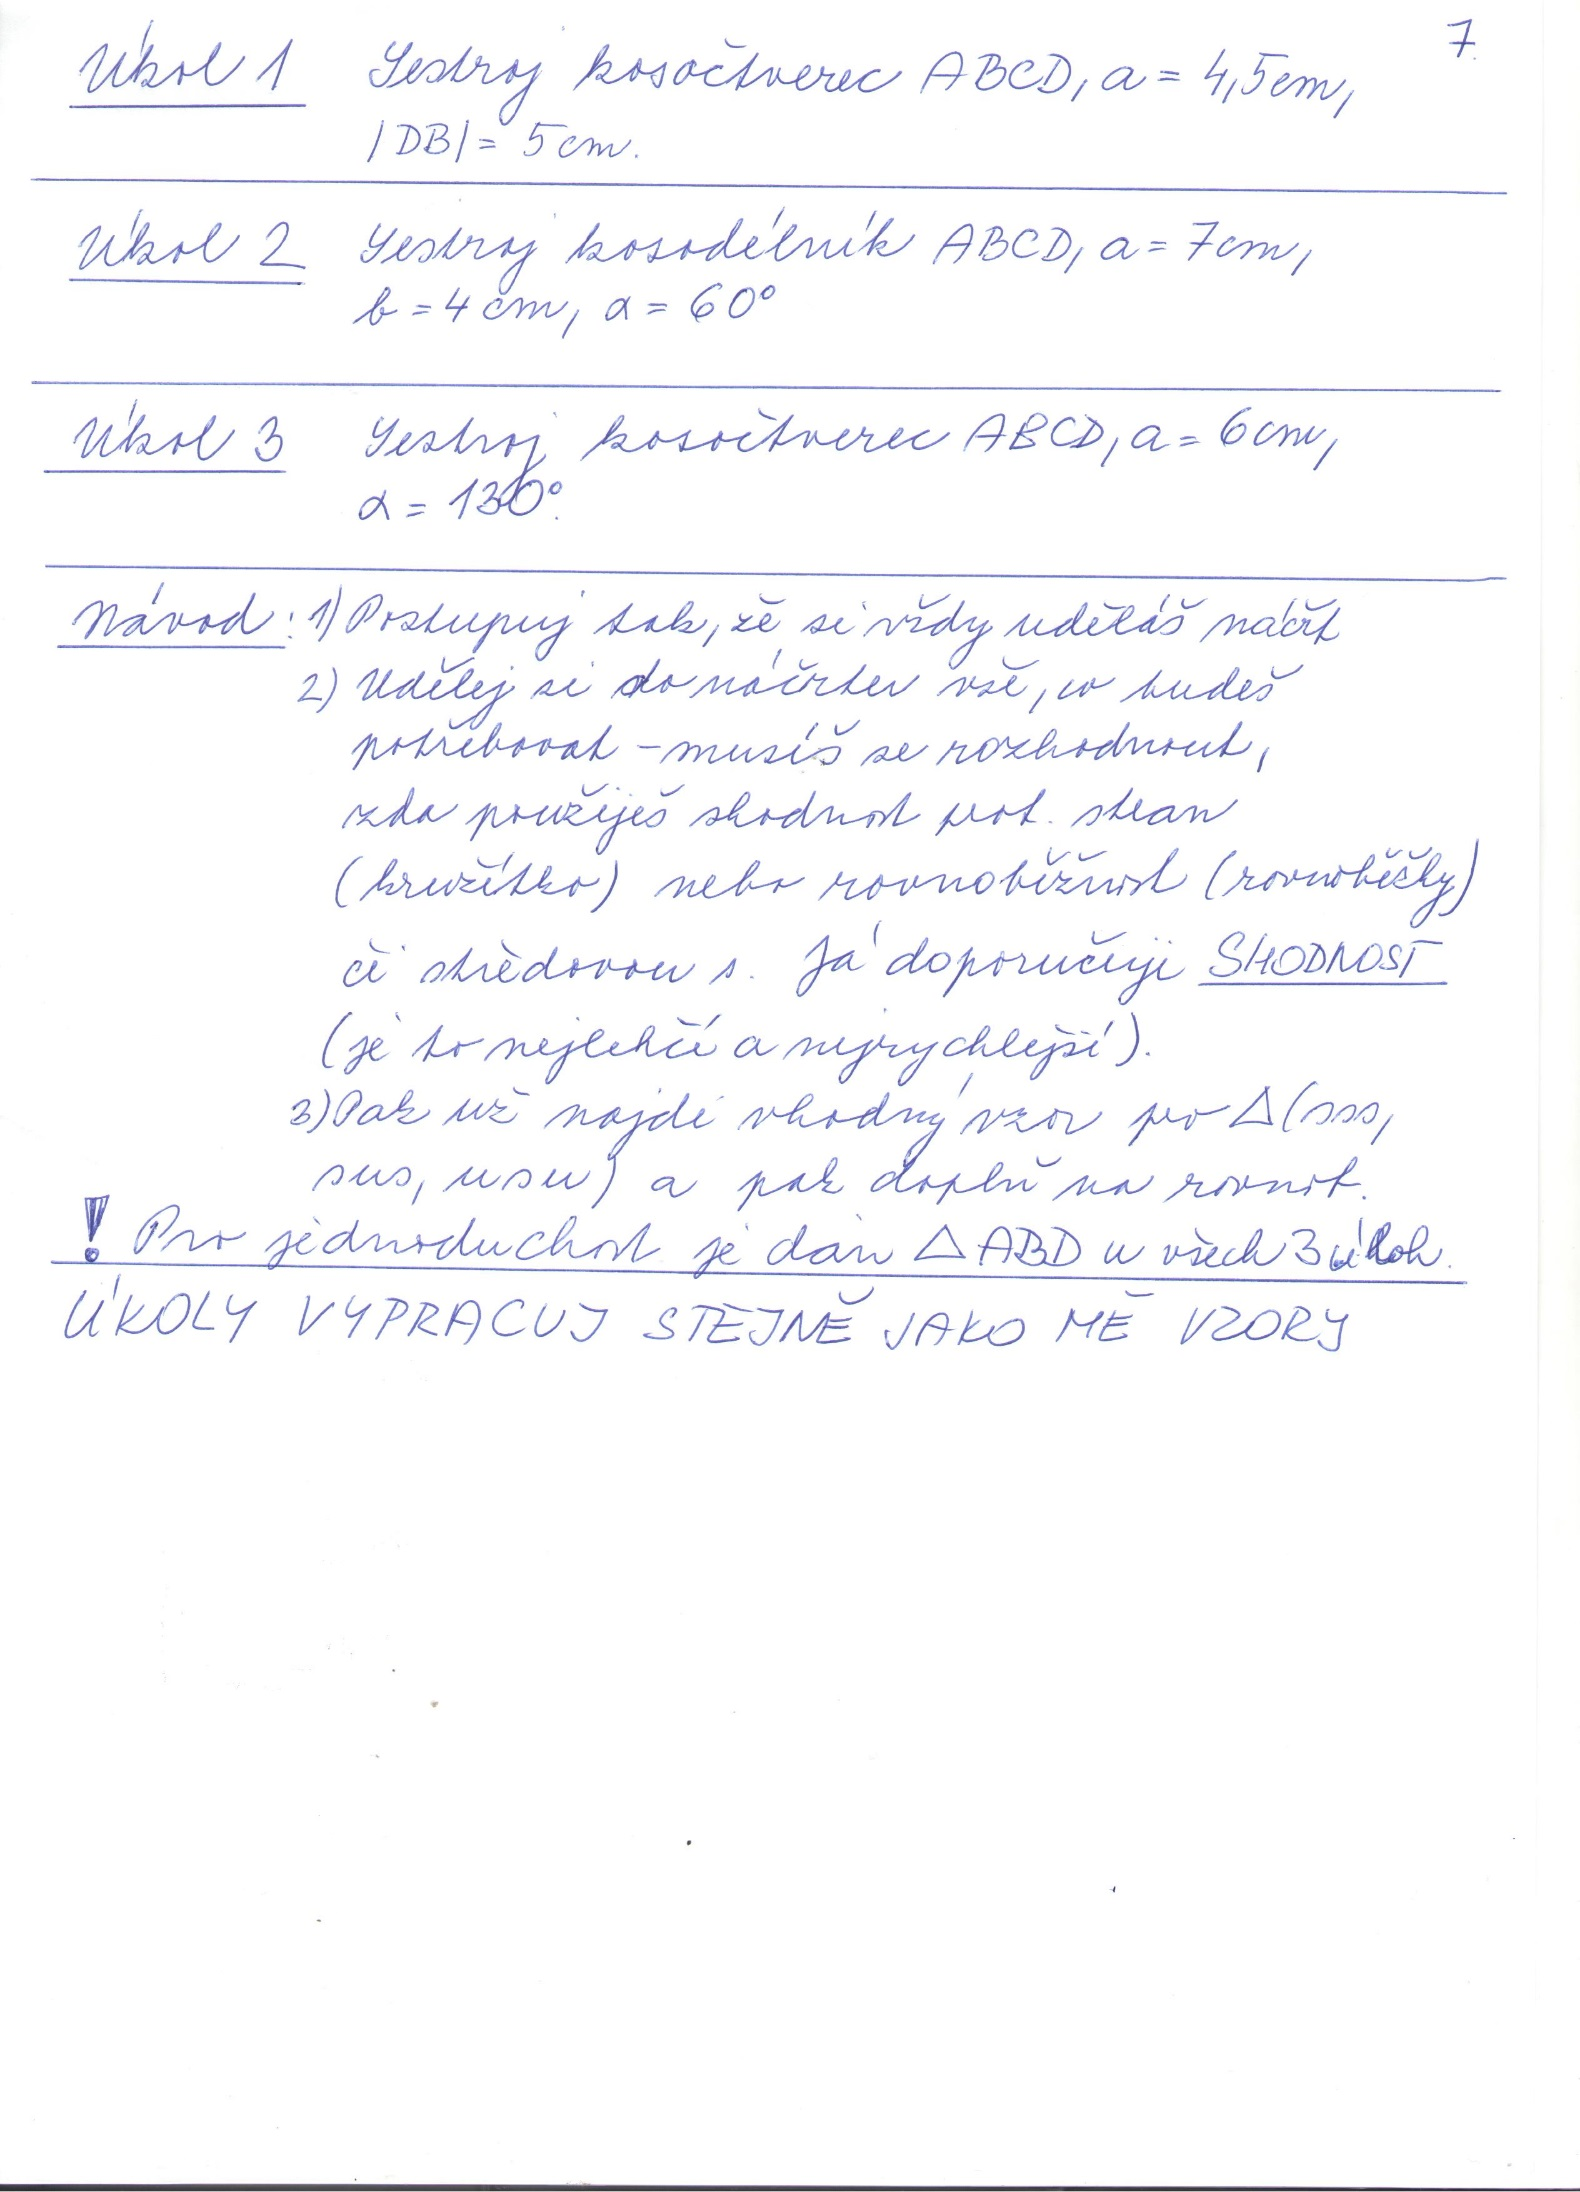 7.
Úkol 1 Sestroj kosočtverec ABCD, a = 4,5cm,
|DB| = 5cm.
Úkol 2 Sestroj kosodélník ABCD, a = 7cm,
b = 4 cm, α = 60°
Úkol 3 Sestroj kosočtverec ABCD, a = 6cm,
α = 130°.
Návod: 1) Postupuj tak, že si vždy uděláš náčrt
2) Udělej si do náčrtu vše, co budeš
potřebovat – musíš se rozhodnout,
zda použiješ shodnost prot. stran
(kružítko) nebo rovnoběžnost (rovnoběžky)
či středovou s. Já doporučuji SHODNOST
(je to nejlehčí a nejrychlejší).
3) Pak už najdi vhodný vzor pro △ (sss,
sus, usu) a pak doplň na rovnob.
! Pro jednoduchost je dán △ ABD u všech 3 úloh.
ÚKOLY VYPRACUJ STEJNĚ JAKO MÉ VZORY